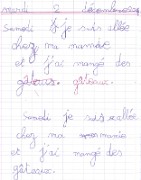 mardi 2 décembre
Samedi je suis allée
chez ma mamie
et j'ai mangé des
gâteaux. gâteaux.
Samedi je suis allée
chez ma mamie
et j'ai mangé des
gâteaux.